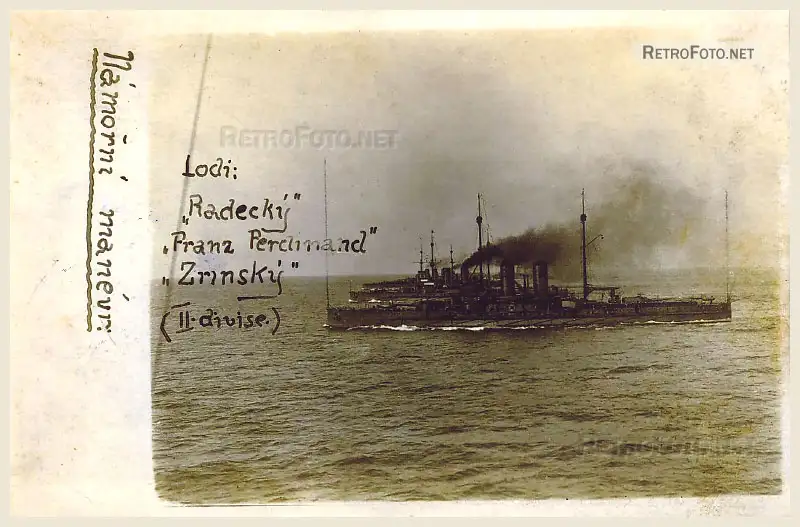 Námořní manévr.
RetroFoto.net
RetroFoto.net
Lodi:
„Radecký"
„Franz Ferdinand"
„Zrinský"
(II. divise.)